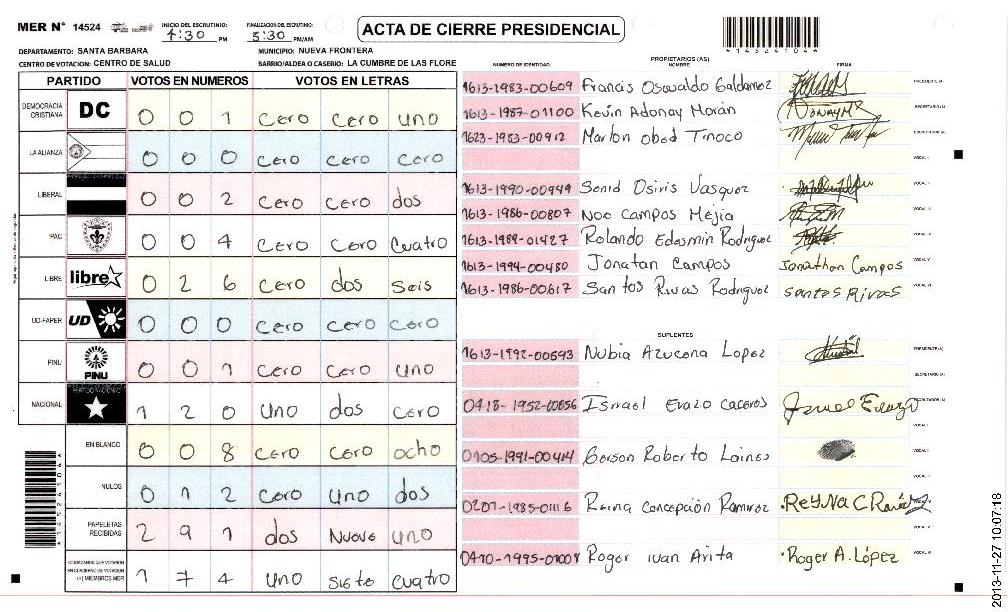 MER N° 14524 INICIO DEL ESCRUTINIO: 4:30 PM FINALIZACION DEL ESCRUTINIO: 5:30 PM/AM ACTA DE CIERRE PRESIDENCIAL *14524104*
DEPARTAMENTO: SANTA BARBARA MUNICIPIO: NUEVA FRONTERA
CENTRO DE VOTACION: CENTRO DE SALUD BARRIO/ALDEA O CASERIO: LA CUMBRE DE LAS FLORE
PARTIDO VOTOS EN NUMEROS VOTOS EN LETRAS
DEMOCRACIA CRISTIANA DC 0 0 1 cero cero uno
LA ALIANZA 0 0 0 cero cero cero
LIBERAL 0 0 2 cero cero dos
PAC 0 0 4 cero cero cuatro
LIBRE libre 0 2 6 cero dos seis
UD-FAPER UD 0 0 0 cero cero cero
PINU PINU 0 0 1 cero cero uno
NACIONAL PARTIDO NACIONAL 1 2 0 uno dos cero
EN BLANCO 0 0 8 cero cero ocho
NULOS 0 1 2 cero uno dos
PAPELETAS RECIBIDAS 2 9 1 dos Nueve uno
CIUDADANOS QUE VOTARON EN CUADERNO DE VOTACION (+) MIEMBROS MER 1 7 4 uno siete cuatro
PROPIETARIOS (AS)
NUMERO DE IDENTIDAD NOMBRE FIRMA
1613-1983-00609 Francis Oswaldo Galdamez PRESIDENTE (A)
1613-1987-01100 Kevin Adonay Morán SECRETARIO (A)
1623-1983-00912 Marlon obed Tinoco ESCRUTADOR (A)
VOCAL I
1613-1990-00949 Senid Osiris Vasquez VOCAL II
1613-1986-00807 Noe Campos Mejia VOCAL III
1613-1989-01427 Rolando Edesmin Rodriguez VOCAL IV
1613-1994-00480 Jonatan Campos Jonathon Campos VOCAL V
1613-1986-00617 Santos Rivas Rodriguez santos Rivas VOCAL VI
SUPLENTES
1613-1992-00643 Nubia Azucena Lopez PRESIDENTE (A)
SECRETARIO (A)
0418-1952-00056 Ismael Erazo caceres ESCRUTADOR (A)
VOCAL I
0105-1991-00414 Gerson Roberto Lainez VOCAL II
VOCAL III
0207-1985-01116 Reina Concepción Ramirez VOCAL IV
VOCAL V
0410-1995-01008 Roger ivan Arita Roger A. López VOCAL VI
*14524104*
2013-11-27 10:07:18